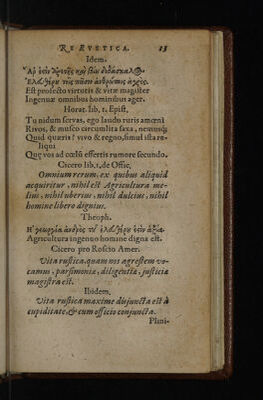 RE RVSTICA. 15
Idem.
Est profecto virtutis & vitæ magister
Ingenuæ omnibus hominibus ager.
Horat. lib. 1. Epist.
Tu nidum seruas, ego laudo ruris amœni
Riuos, & musco circumlita saxa, nemusq́;
Quid quæris? viuo & regno, simul ista re-
liqui
Quę vos ad cœlũ effertis rumore secundo.
Cicero lib. 1. de Offic.
Omnium rerum, ex quibus aliquid
acquiritur, nihil est Agricultura me-
lius, nihil vberius, nihil dulcius, nihil
homine libero dignius.
Theoph.
Agricultura ingenuo homine digna est.
Cicero pro Roscio Amer.
Vita rustica, quam nos agrestem vo-
camus, parsimoniæ, diligentiæ, justiciæ
magistra est.
Ibidem.
Vita rustica maxime disjuncta est à
cupiditate, & cum officio conjuncta.
Plani-